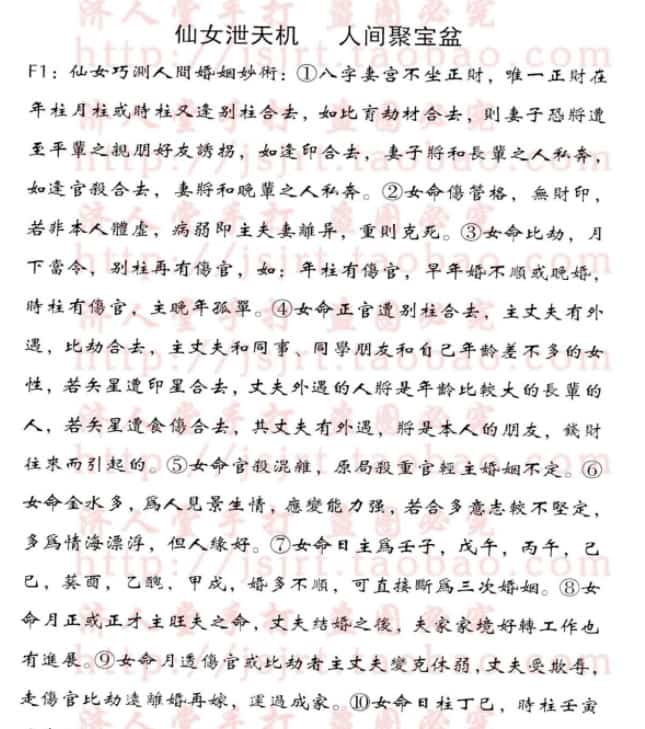 仙女泄天机 人间聚宝盆
F1：仙女巧測人間婚姻妙術：①八字妻宮不坐正財，唯一正財在
年柱月柱或時柱又逢别柱合去，如比肓劫材合去，則妻子恐將遭
至平輩之親朋好友誘拐，如逢印合去，妻子將和長輩之人私奔，
如逢官殺合去，妻將和晚輩之人私奔。②女命傷管格，無財印，
若非本人體虚，病弱即主夫妻離异，重則克死。③女命比劫，月
下當令，别柱再有傷官，如：年柱有傷官，早年婚不順或晚婚，
時柱有傷官，主晚年孤單。④女命正官遭别柱合去，主丈夫有外
遇，比劫合去，主丈夫和同事、同學朋友和自己年齡差不多的女
性，若矢星遭印星合去，丈夫外遇的人將是年齡比較大的長輩的
人，若矢星遭食傷合去，其丈夫有外遇，將是本人的朋友，錢財
往來而引起的。⑤女命官殺混雜，原局殺重官輕主婚姻不定。⑥
女命金水多，爲人見景生情，應變能力强，若合多意志較不堅定，
多爲情海漂浮，但人緣好。⑦女命日主爲壬子，戊午，丙午，己
已，葵酉，乙醜，甲戍，婚多不順，可直接斷爲三次婚姻。⑧女
命月正或正才主旺夫之命，丈夫結婚之後，夫家家境好轉工作也
有進展。⑨女命月透傷官或比劫者主丈夫變克休弱，丈夫受欺辱，
走傷官比劫遠離婚再嫁，運過成家。⑩女命日柱丁巳，時柱壬寅
济人堂手打 盗图必究
http://jsjrt.taobao.com